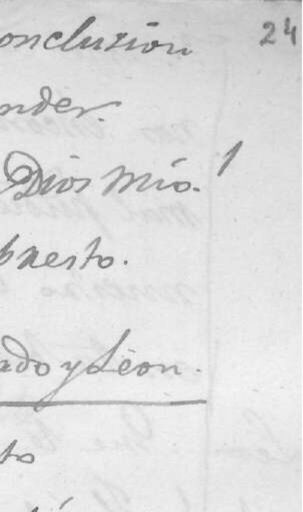 onclusion 24
nder.
Dios Mio.!
puesto.
ado y Leon.
to